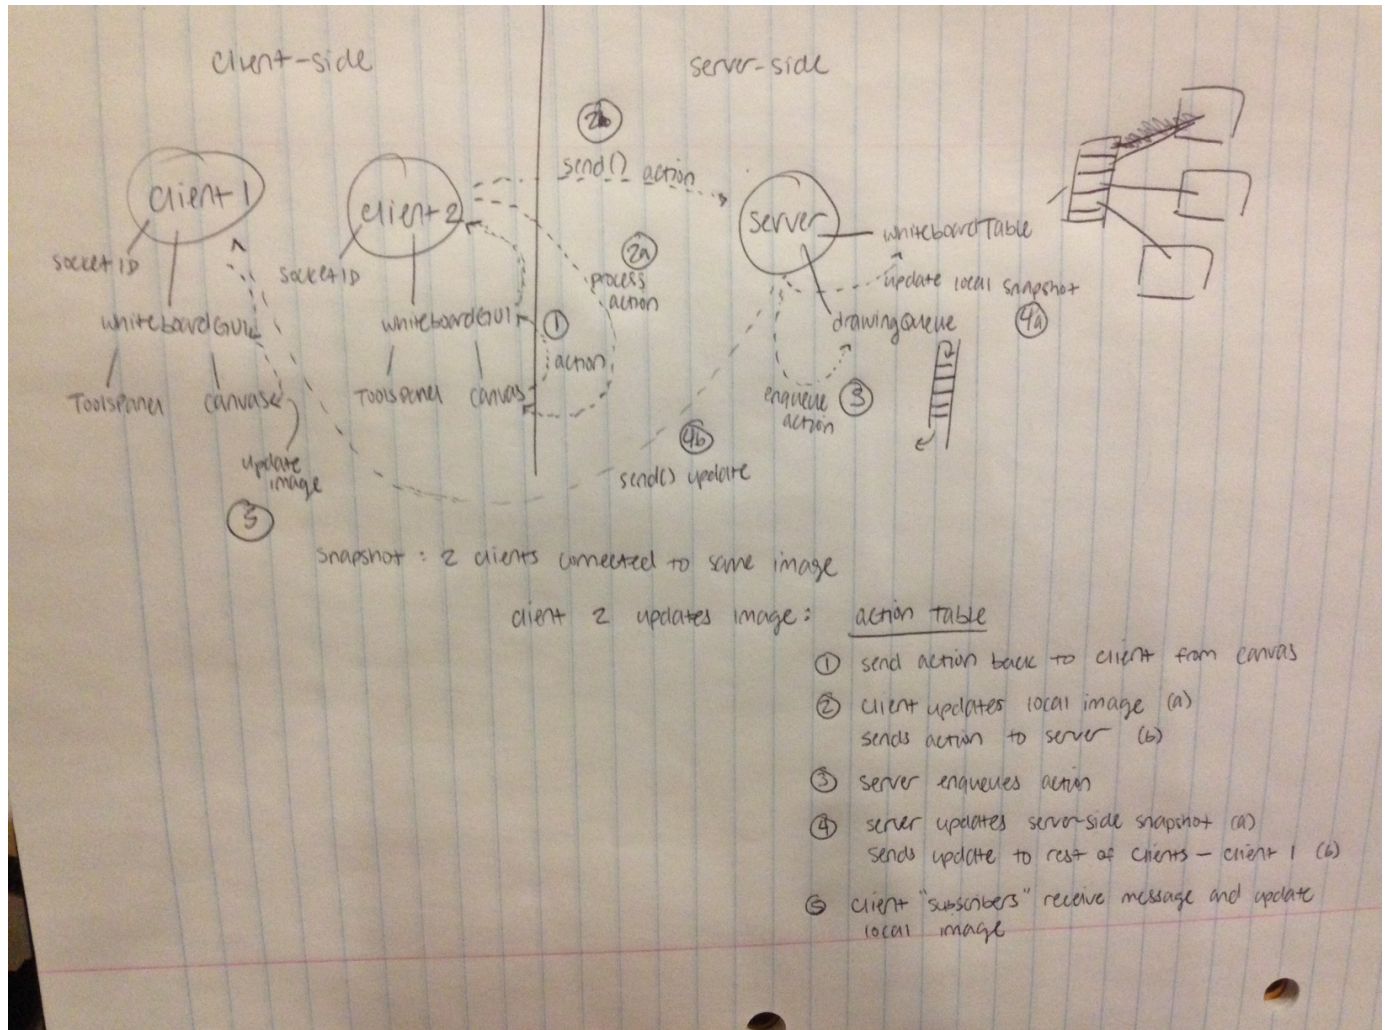 client-side
server-side
2b
send() action
client 1
client 2
server
whiteboardTable
socket ID
socket ID
2a
process
action
update local snapshot
4a
whiteboardGUI
whiteboardGUI
1
action
drawingQueue
ToolsPanel
canvas
ToolsPanel
canvas
enqueue
action
3
4b
send() update
update
image
5
snapshot : 2 clients connected to same image
client 2 updates image :
action table
1 send action back to client from canvas
2 client updates local image (a)
sends action to server (b)
3 server enqueues action
4 server updates server-side snapshot (a)
sends update to rest of clients - client 1 (b)
5 client "subscribers" receive message and update
local image